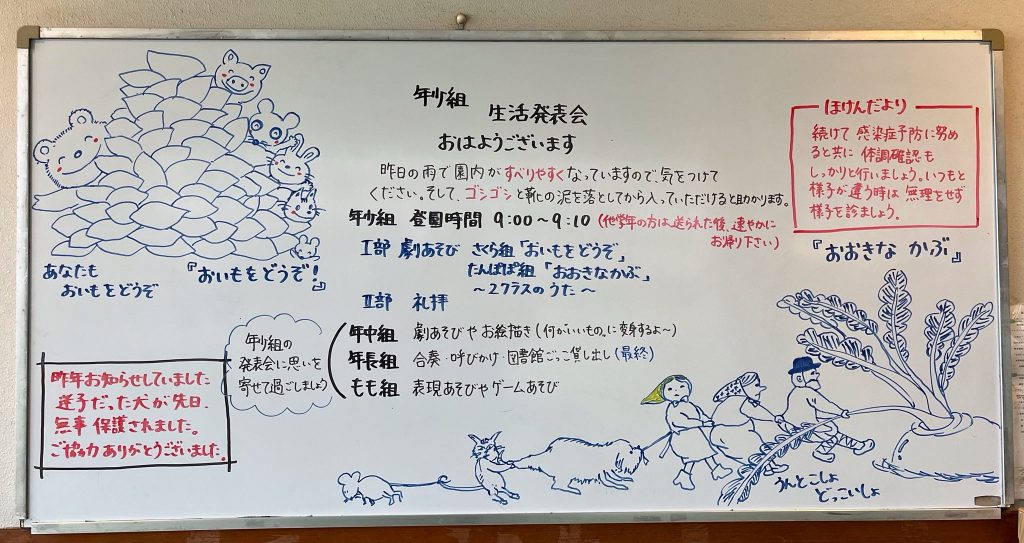 年少組
生活発表会
おはようございます
昨日の雨で園内がすべりやすくなっていますので、気をつけて
ください。そして、ゴシゴシと靴の泥を落としてから入っていただけると助かります。
年少組 登園時間 9:00～9:10 (他学年の方は送られた後、速やかに
お帰り下さい)
Ⅰ部 劇あそび さくら組「おいもをどうぞ」
たんぽぽ組「おおきなかぶ」
～2クラスのうた～
Ⅱ部 礼拝
年少組の
発表会に思いを
寄せて過ごしましょう
年中組 劇あそびやお絵描き(何がいいもの、に変身するよ～)
年長組 合奏・呼びかけ・図書館ごっこ貸し出し(最終)
もも組 表現あそびやゲームあそび
あなたも
おいもをどうぞ
『おいもをどうぞ!』
昨年お知らせしていました
迷子だった犬が先日、
無事 保護されました。
ご協力ありがとうございました。
ほけんだより
続けて 感染症予防に努め
ると共に 体調確認も
しっかりと行いましょう。いつもと
様子が違う時は 無理をせず
様子を診ましょう。
『おおきな かぶ』
うんとこしょ
どっこいしょ